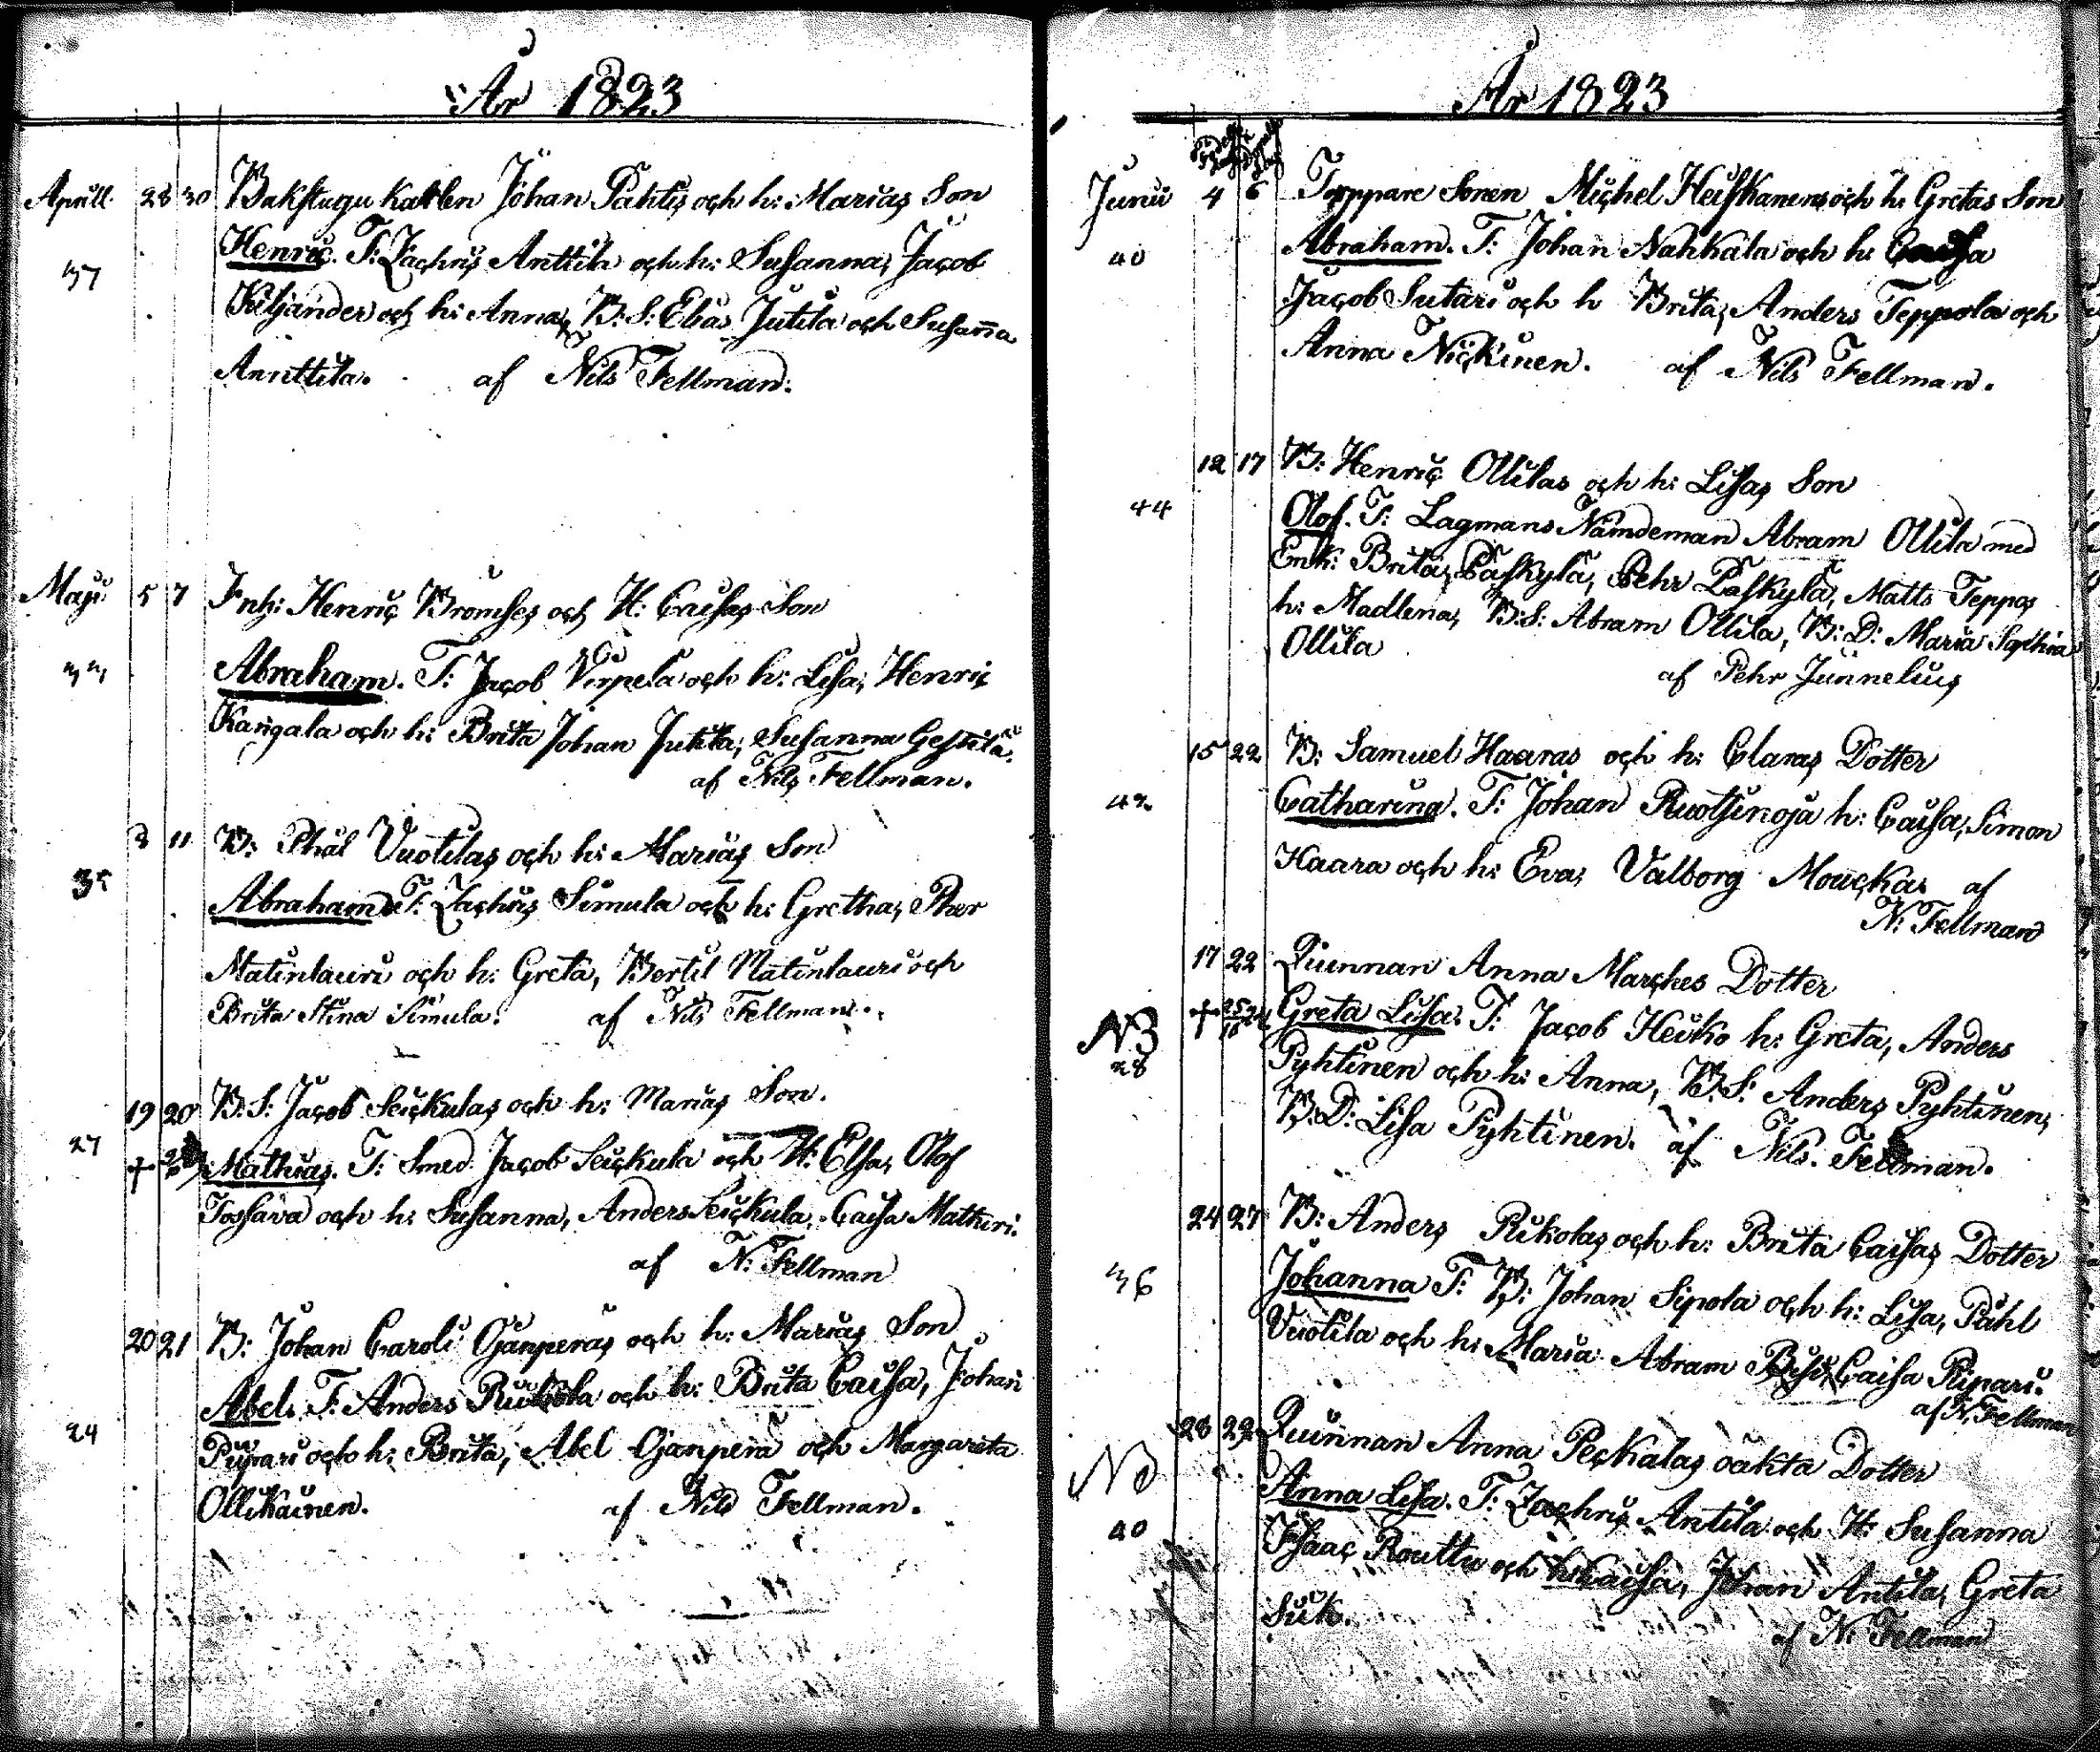 År 1823
Aprill. 28 30 Bakstugu karlen Johan Pahtis och h: Marias Son
37 Henric. F: Zachris Anttila och h: Susanna, Jacob
Kiljander och h: Anna, B: S: Elias Jutila och Susaña
Anttila. af Nils Fellman.
Maji 5 7 Inh: Henric Bromses och H: Caisas Son
33 Abraham. F: Jacob Virpela och h: Lisa, Henric
Kangala och h: Brita Johan Jutila, Susanna Gestilä.
af Nils Fellman.
3 11 B: Phäl Vuotilas och h: Marias Son
35 Abraham F: Zachris Simula och h: Gretha, Pher
Matinlauri och h: Greta, Bertil Matinlauri och
Brita Stina Simula. af Nils Fellman.
19 20 B: S: Jacob Seickulas och h: Marias Son.
27 + Mathias. F: Smed Jacob Seickula och H: Elsa, Olof
Tossava och h: Susanna, Anders Seickula, Caisa Matheri.
af N: Fellman
20 21 B: Johan Caroli Ojanperas och h: Marias Son
Abel. F: Anders och h: Brita Caisa, Johan
24 Pipari och h: Brita, Abel Ojanpera och Margareta
Ollikainen. af Nils Fellman.
År 1823
Junii 4 6 Torppare Sonen Michel Heiskanens och h: Gretas Son
40 Abraham. F: Johan Nahkala och h: Caisa
Jacob Sutari och h Brita, Anders Teppola och
Anna Nickinen. af Nils Fellman.
12 17 B: Henric Ollilas och h: Lisas Son
44 Olof. F: Lagmans Nämdeman Abram Ollila med
Enk: Brita Paskylä, Pehr Paskylä, Matts Teppos
h: Madlena, B: S: Abram Ollila, B: D: Maria Sophia
Ollila af Pehr Junnelius
15 22 B: Samuel Haaras och h: Claras Dotter
42 Catharina. F: Johan Ruotsinoja h: Caisa, Simon
Haara och h: Eva, Valborg Mouckas af
N: Fellman
17 22 Quinnan Anna Marckes Dotter
NB + Greta Lisa. F: Jacob Heiko h: Greta, Anders
28 Pyhtinen och h: Anna, B: S: Anders Pyhtinen,
B: D: Lisa Pyhtinen. af Nils. Fellman.
24 27 B: Anders Rikolas och h: Brita Caisas Dotter
36 Johanna F: B: Johan Sipola och h: Lisa, Påhl
Vuotila och h: Maria Abram Caisa Pipari.
af N. Fellman
28 29 Quinnan Anna Peckalas oäkta Dotter
NB Anna Lisa. F: Zachris Antila och H: Susanna
40 Isaac Routtu och h: Caisa, Johan Antila, Greta
Suk. af N: Fellman